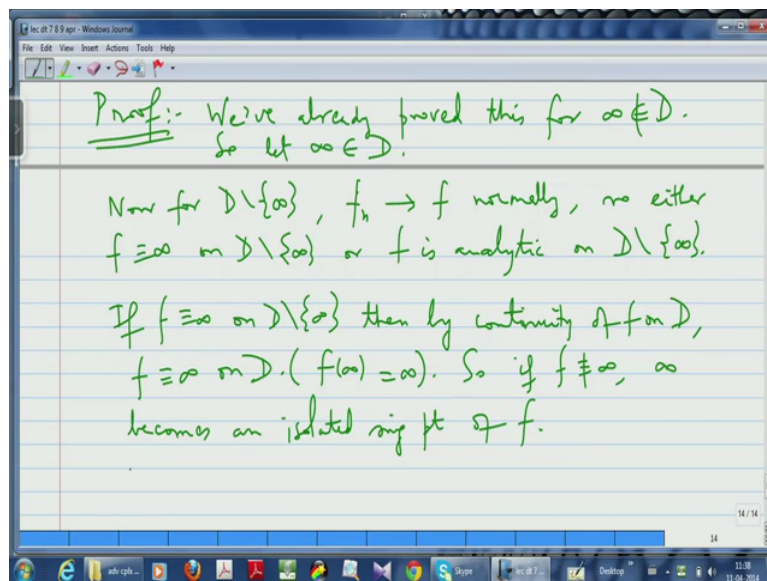 lec dt 7 8 9 apr - Windows Journal
File Edit View Insert Actions Tools Help
Proof:- We've already proved this for ∞ ∉ D.
So let ∞ ∈ D.
Now for D\{∞}, fₙ → f normally, so either
f ≡ ∞ on D\{∞} or f is analytic on D\{∞}.
If f ≡ ∞ on D\{∞} then by continuity of f on D,
f ≡ ∞ on D. (f(∞) = ∞). So if f ≢ ∞, ∞
becomes an isolated sing pt of f.
14 / 14
14
adv cplx ...
Skype
lec dt 7 ...
Desktop
11:38
11-04-2014